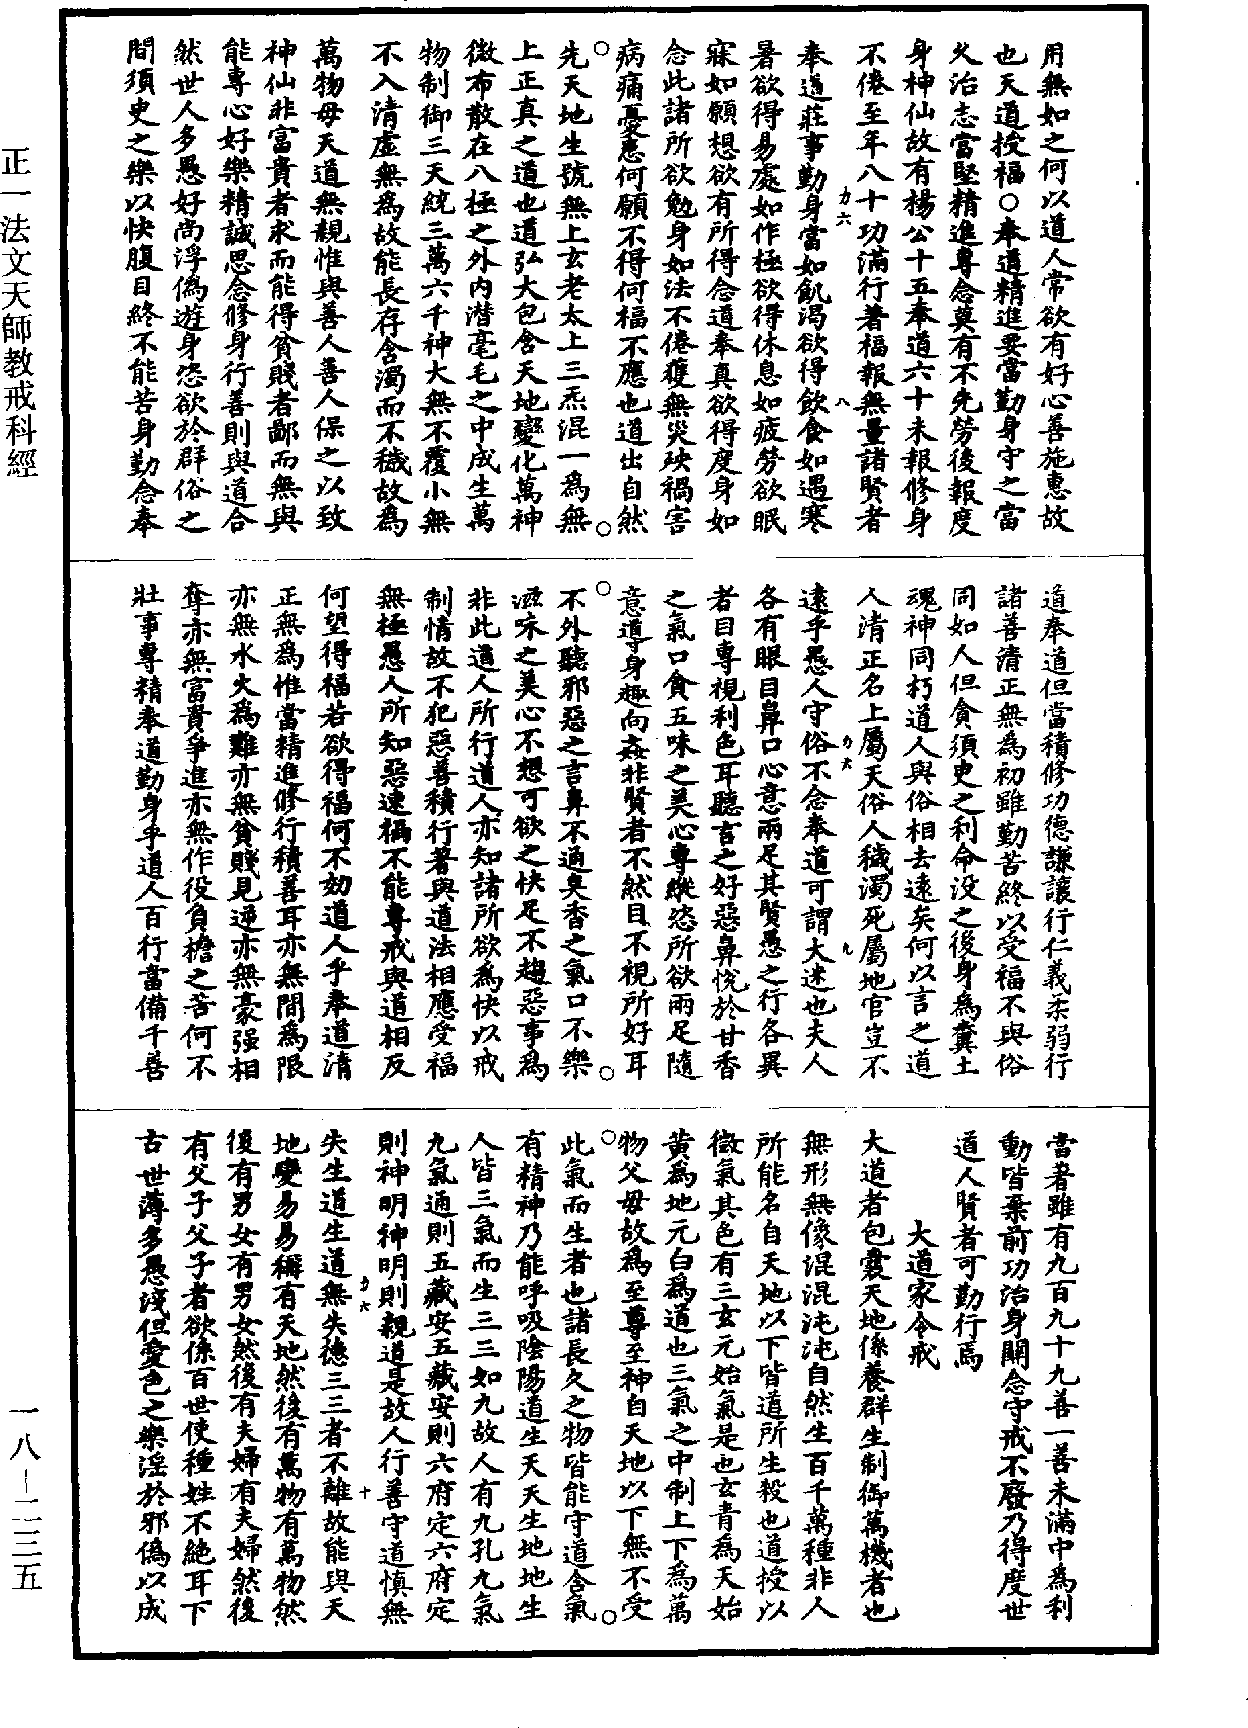 用無如之何以道人常欲有好心善施惠故
也天道授福○奉道精進要當勤身守之當
久治志當堅精進專念莫有不先勞後報度
身神仙故有楊公十五奉道六十未報修身
不倦至年八十功滿行著福報無量諸賢者
奉道莊事勤身當如飢渴欲得飲食如遇寒
力六
八
暑欲得易處如作極欲得休息如疲勞欲眠
寐如願想欲有所得念道奉真欲得度身如
念此諸所欲勉身如法不倦獲無災殃禍害
病痛憂患何願不得何福不應也道出自然
先天地生號無上玄老太上三炁混一為無
上正真之道也道弘大包含天地變化萬神
微布散在八極之外內潛毫毛之中成生萬
物制御三天統三萬六千神大無不覆小無
不入清虛無為故能長存含濁而不穢故為
萬物母天道無親惟與善人善人保之以致
神仙非富貴者求而能得貧賤者鄙而無與
能專心好樂精誠思念修身行善則與道合
然世人多愚好尚浮偽遊身恣欲於群俗之
間須臾之樂以快腹目終不能苦身勤念奉
道奉道但當積修功德謙讓行仁義柔弱行
諸善清正無為初雖勤苦終以受福不與俗
同如人但貪須臾之利命没之後身為糞土
魂神同朽道人與俗相去遠矣何以言之道
人清正名上屬天俗人穢濁死屬地官豈不
遠乎愚人守俗不念奉道可謂大迷也夫人
力六
九
各有眼目鼻口心意兩足其賢愚之行各異
者目專視利色耳聽言之好惡鼻悅於甘香
之氣口貪五味之美心專縱恣所欲兩足隨
意導身趣向姦非賢者不然目不視所好耳
不外聽邪惡之言鼻不通臭香之氣口不樂
滋味之美心不想可欲之快足不趨惡事為
非此道人所行道人亦知諸所欲為快以戒
制情故不犯惡善積行著與道法相應受福
無極愚人所知惡速禍不能專戒與道相反
何望得福若欲得福何不効道人乎奉道清
正無為惟當精進修行積善耳亦無間為限
亦無水火為難亦無貧賤見逆亦無豪强相
奪亦無富貴爭進亦無作役負擔之苦何不
壯事專精奉道勤身乎道人百行當備千善
當著雖有九百九十九善一善未滿中為利
動皆棄前功治身關念守戒不廢乃得度世
道人賢者可勤行焉
大道家令戒
大道者包囊天地係養群生制御萬機者也
無形無像混混沌沌自然生百千萬種非人
所能名自天地以下皆道所生殺也道授以
微氣其色有三玄元始氣是也玄青為天始
黃為地元白為道也三氣之中制上下為萬
物父母故為至尊至神自天地以下無不受
此氣而生者也諸長久之物皆能守道含氣
有精神乃能呼吸陰陽道生天天生地地生
人皆三氣而生三三如九故人有九孔九氣
九氣通則五藏安五藏安則六府定六府定
則神明神明則親道是故人行善守道慎無
力六
十
失生道生道無失德三三者不離故能與天
地變易易稱有天地然後有萬物有萬物然
後有男女有男女然後有夫婦有夫婦然後
有父子父子者欲係百世使種姓不絶耳下
古世薄多愚淺但愛色之樂淫於邪偽以成
正一法文天師教戒科經
一八-二三五